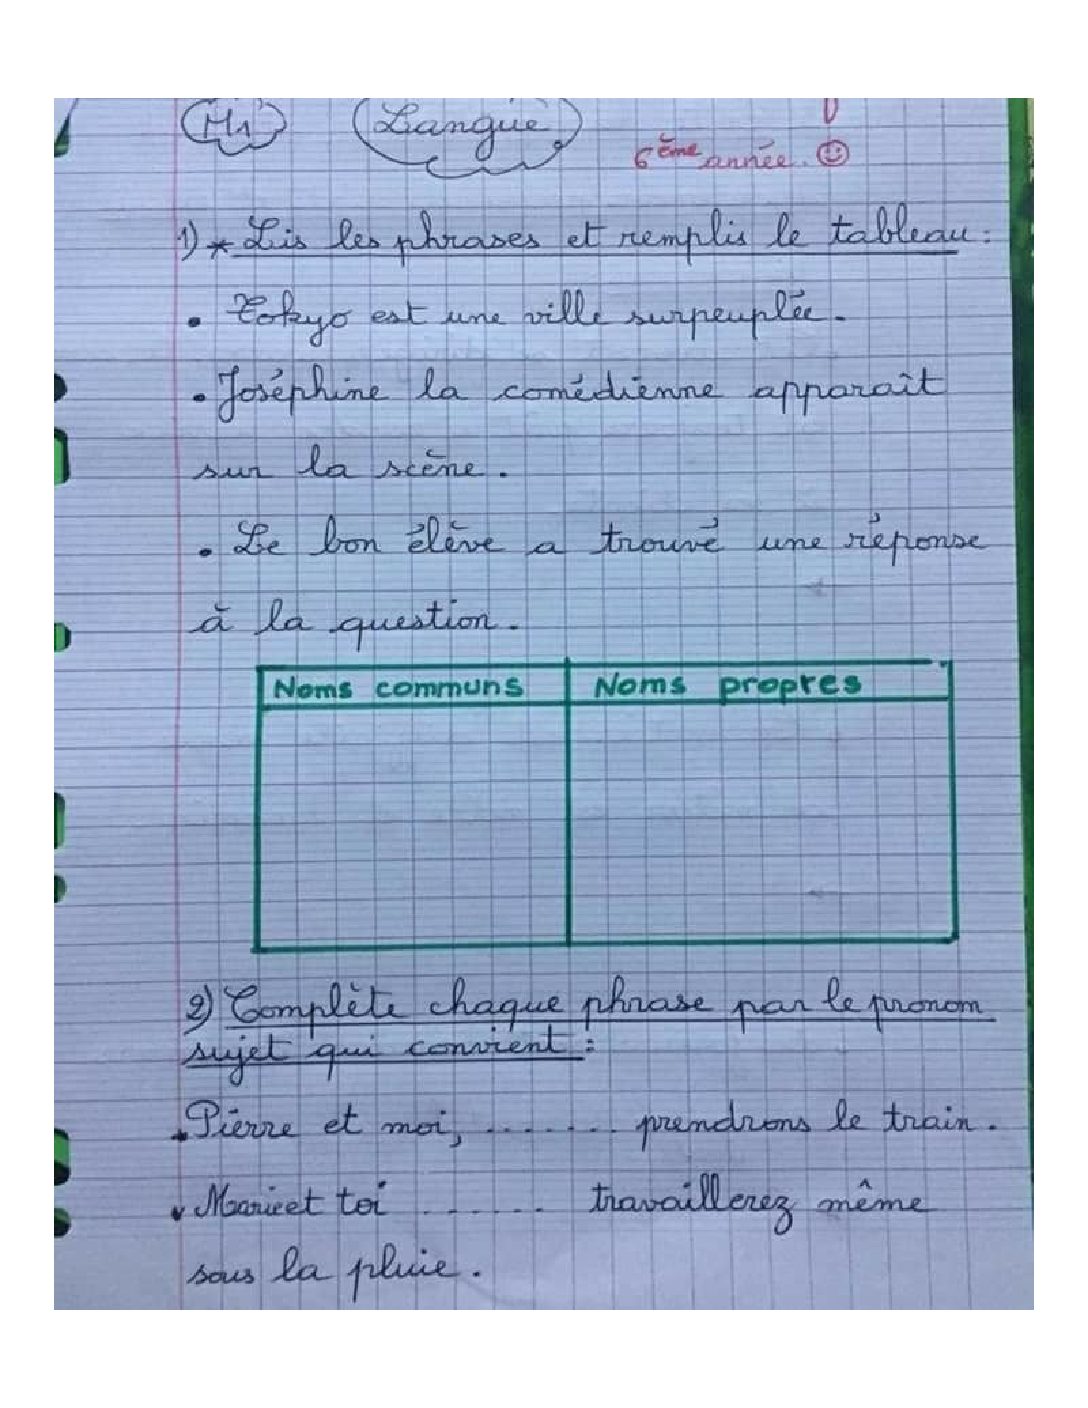 M1 Langue
6ème année.
1) * Lis les phrases et remplis le tableau :
• Tokyo est une ville surpeuplée.
• Joséphine la comédienne apparaît
sur la scène.
• Le bon élève a trouvé une réponse
à la question.
Noms communs Noms propres
2) Complète chaque phrase par le pronom
sujet qui convient :
Pierre et moi, ....... prendrons le train.
Marie et toi ....... travaillerez même
sous la pluie.